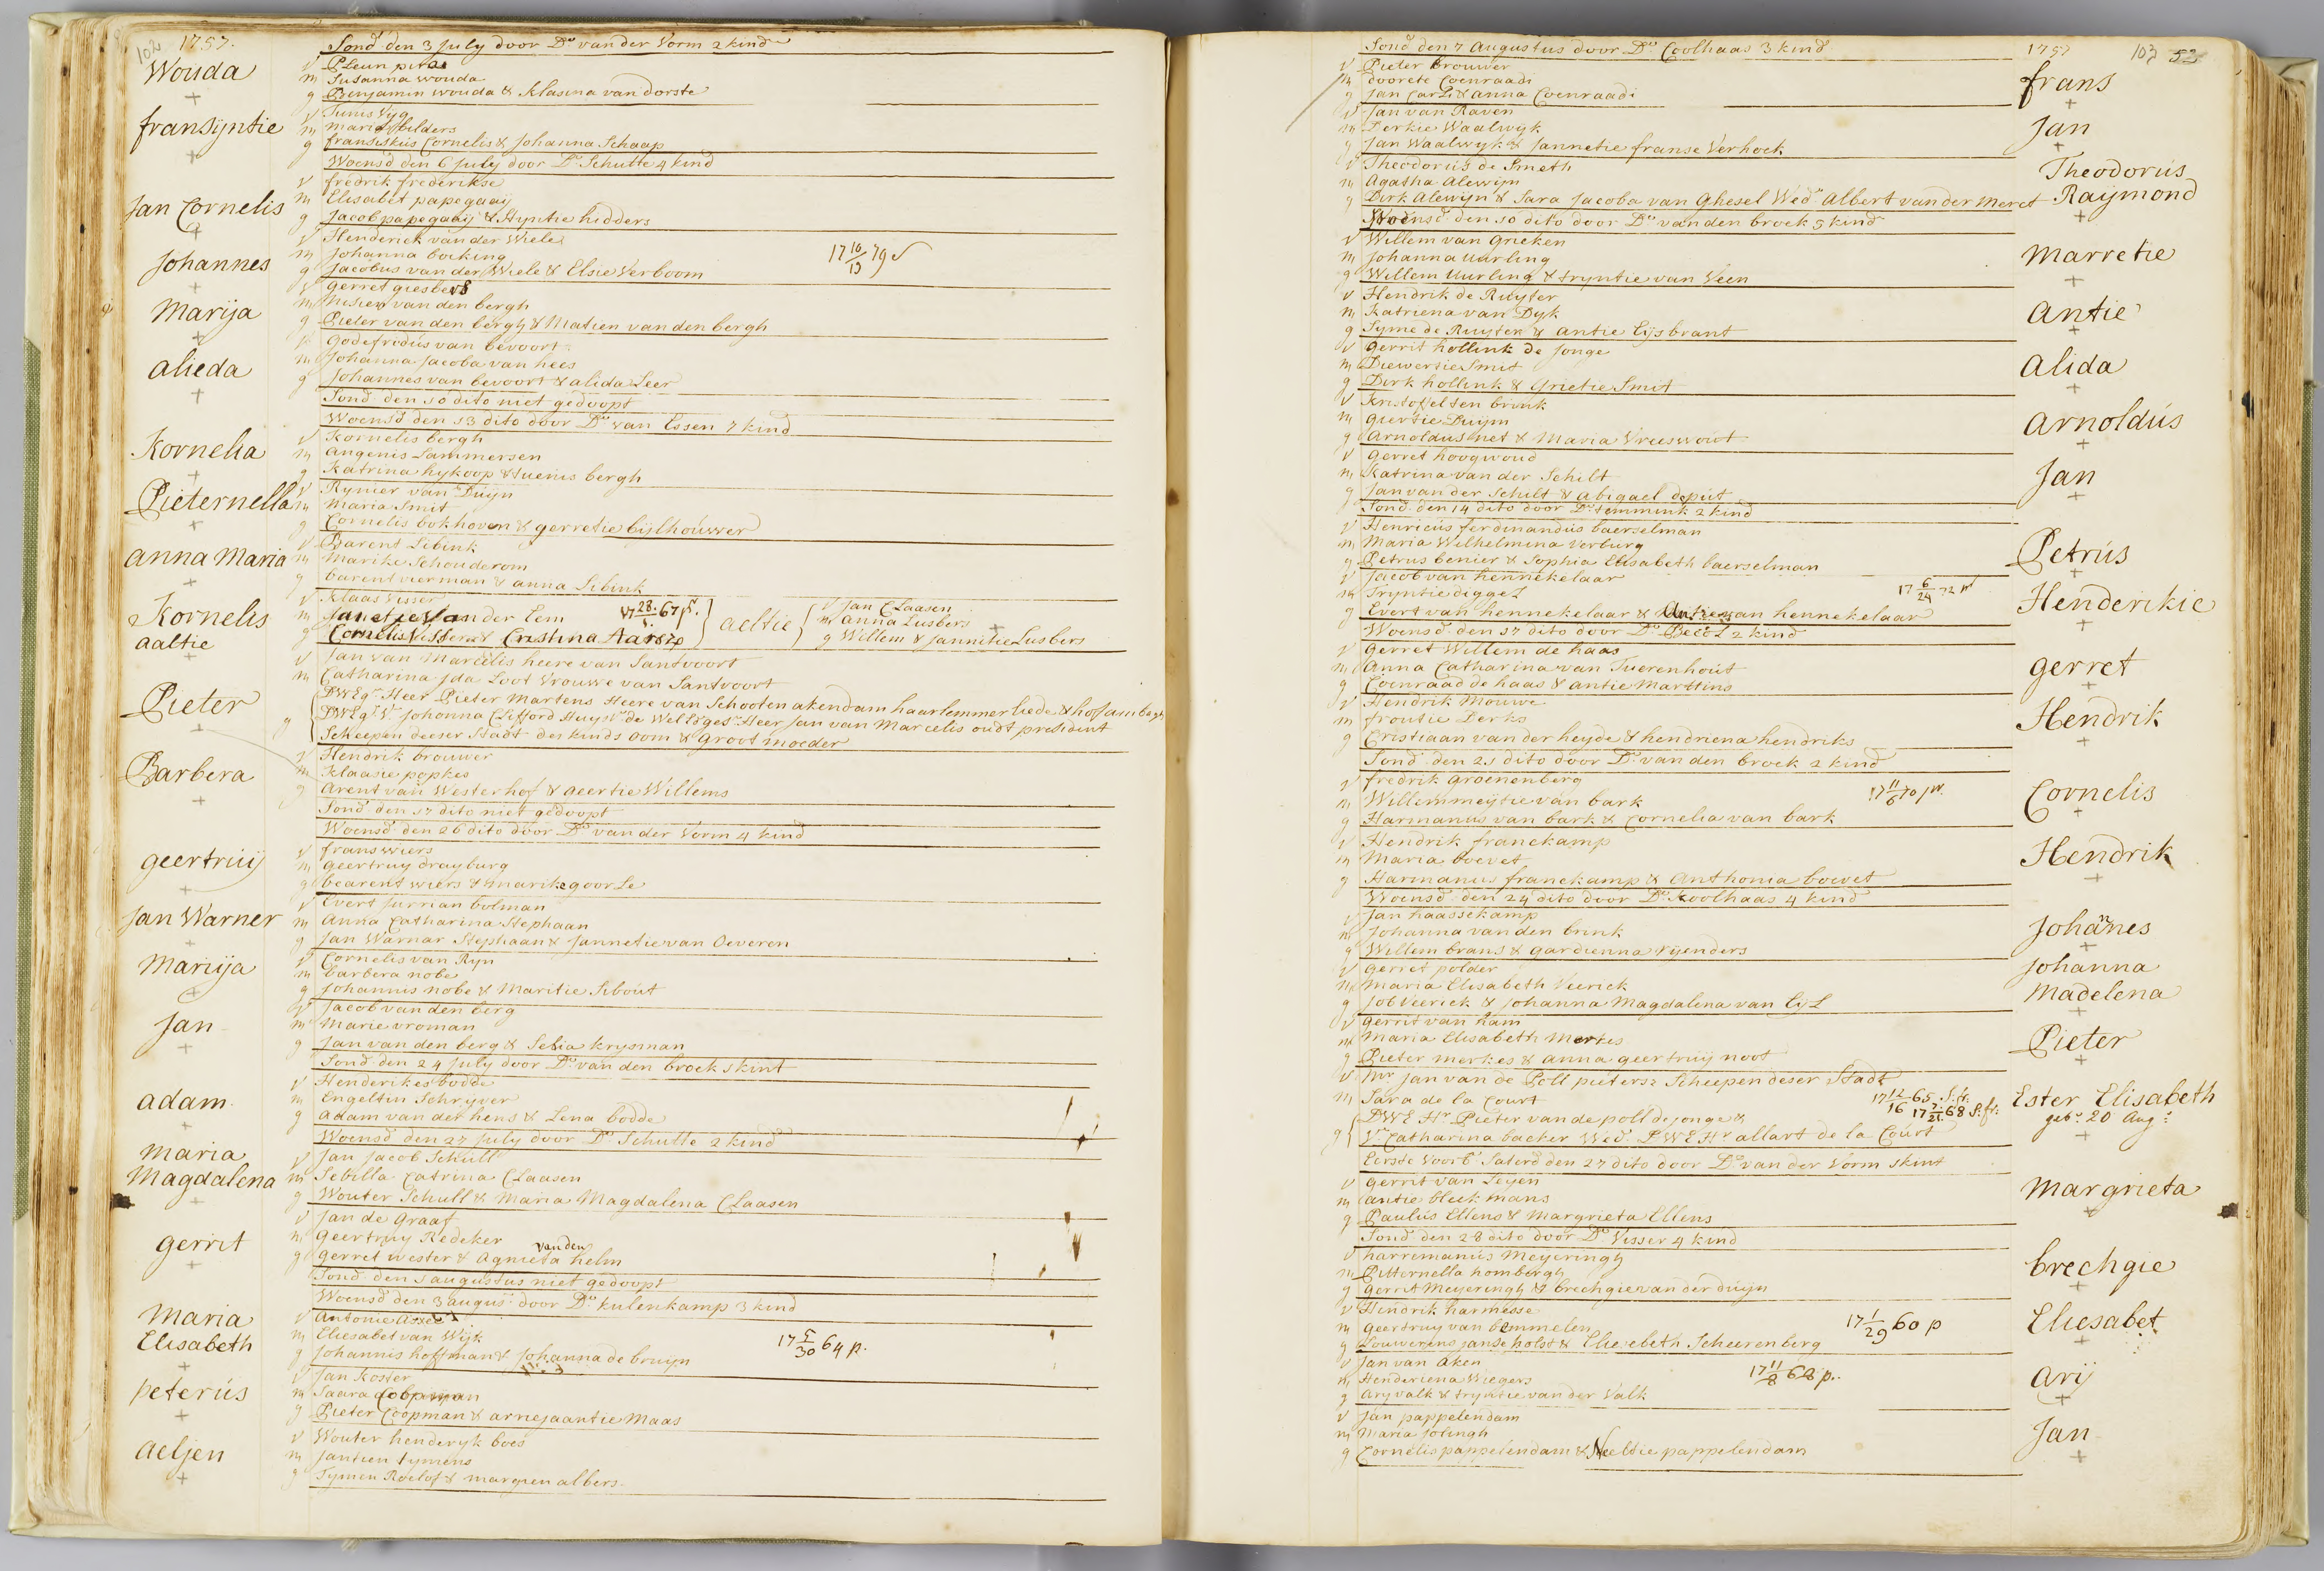 102 1757.
Sond den 3 July door Ds van der Vorm 2 kind
Wouda
v Pleun
m Susanna wouda
g Benjamin wouda & Klasina van dorste
fransijntie
v Tunis Vyg
m maria hilders
g fransiskus Cornelis & Johanna Schaap
Woensd den 6 July door Ds Schutte 4 kind
Jan Cornelis
v fredrik frederikse
m Elisabet papegaaij
g Jacob papegaaij & Styntie hidders
Johannes
v Henderick van der Wiele
m Johanna boeking
g Jacobus van der Wiele & Elsie Verboom
17 10/13 79
Marija
v gerret giesbers
m van den bergh
g Pieter van den bergh & Matien van den bergh
alieda
v godefridus van bevoort
m Johanna Jacoba van hees
g Johannes van bevoort & alida Leer
Sond den 10 dito niet gedoopt
Woensd den 13 dito door Ds van Essen 7 kind
Kornelia
v Kornelis bergh
m angenis Lammersen
g Katrina hykoop & tuenis bergh
Pieternella
v Rynier van Duyn
m Maria Smit
g Cornelis bokhoven & gerretie bijlhouwer
anna Maria
v Barent Sibink
m Marike Schouderom
g barent vierman & anna Sibink
Kornelis
v Klaas Visser
m Janetje Van der Eem
17 28/ 67 p.
g Cornelis Visser & Cristina Aarse
aeltie
v Jan Claasen
m anna Lusbers
g Willem & Jannetie Lusbers
aaltie
Pieter
v Jan van Marcelis heere van Santvoort
m Catharina Ida Loot Vrouwe van Santvoort
g DWEgr Heer Pieter Martens Heere van Schooten akendam haarlemmerliede & hofambagh
DWEgr Vr Johanna Clifford Huysvr de WelEdgesr Heer Jan van Marcelis oudt president
Scheepen deeser Stadt des kinds oom & groot moeder
Barbera
v Hendrik brouwer
m Klaasie popkes
g arent van Westerhof & geertie Willems
Sond den 17 dito niet gedoopt
Woensd den 20 dito door Ds van der Vorm 4 kind
geertruij
v frans wiers
m geertruy drayburg
g bearent wiers & marike goorle
Jan Warner
v Evert Jurrian bolman
m Anna Catharina Stephaan
g Jan Warnar Stephaan & Jannetie van Oeveren
Marija
v Cornelis van Ryn
m barbera nobe
g Johannis nobe & Maritie Sibout
Jan
v Jacob van den berg
m Marie vroman
g Jan van den berg & Sebia krysman
Sond den 24 July door Ds van den broek 1 kint
adam
v Henderikes bodde
m Engeltin Schryver
g adam van der hens & Lena bodde
Woensd den 27 July door Ds Schutte 2 kind
Maria
Magdalena
v Jan Jacob Schull
m Sebilla Catrina Claasen
g Wouter Schull & Maria Magdalena Claasen
gerrit
v Jan de graaf
m geertruy Redeker
g gerret wester & Agnieta van den helm
Sond den 1 augustus niet gedoopt
Woensd den 3 augus door Ds kulenkamp 3 kind
Maria
Elisabeth
v antonie
m Eliesabet van Wijk
g Johannis hoffman & Johanna de bruyn
17 5/30 64 p.
peterus
v Jan Koster
m Saara Coopman
g Pieter Coopman & arriejaantie Maas
aeljen
v Wouter henderyk boes
m Jantien tymens
g Tymen Roelof & margien albers
Sond den 7 Augustus door Ds Coolhaas 3 kind
1757 103 52
v Pieter brouwer
m doorete Coenraadi
g Jan Carl & anna Coenraadi
frans
v Jan van Raven
m Derkie Waalwyk
g Jan Waalwyk & Jannetie franse Verhoek
Jan
v Theodorus de Smeth
m Agatha Alewijn
g Dirk Alewijn & Sara Jacoba van Ghesel Wedr Albert van der Merct
Theodorus
Raijmond
Woensd den 10 dito door Ds van den broek 5 kind
v Willem van Grieken
m Johanna Uurling
g Willem Uurling & tryntie van Veen
Marretie
v Hendrik de Ruyter
m Katriena van Dyk
g Syme de Ruyter & antie Eijsbrant
Antie
v gerrit hollink de Jonge
m Diewertie Smit
g Dirk hollink & Grietie Smit
Alida
v Kristoffel ten brink
m giertie Duijm
g arnoldus met & Maria Vreeswoort
Arnoldus
v gerret hoogwoud
m Katrina van der Schilt
g Jan van der Schilt & abigael deput
Jan
Sond den 14 dito door Ds temmink 2 kind
v Henricus ferdinandus baerselman
m Maria Wilhelmina Verburg
g Petrus benier & Sophia Elisabeth baerselman
Petrus
v Jacob van hennekelaar
m Tryntie digges
17 6/24 72
g Evert van hennekelaar & van hennekelaar
Henderikie
Woensd den 17 dito door Ds Becol 2 kind
v gerret Willem de haas
m Anna Catharina van Tuerenhout
g Coenraad de haas & antie Marttins
gerret
v Hendrik Mouwe
m froutie Derks
g Cristiaan van der heyde & hendriena hendriks
Hendrik
Sond den 21 dito door Ds van den broek 2 kind
v fredrik groenenberg
m Willemmeijtie van bark
17 11/6 70 pr.
g Harmanus van bark & Cornelia van bark
Cornelis
v Hendrik franekamp
m Maria boevet
g Harmanus franekamp & Anthonia boevet
Hendrik
Woensd den 24 dito door Ds Koolhaas 4 kind
v Jan haassekamp
m Johanna van den brink
g Willem brans & gardienna rijenders
Johannes
v gerret polder
m Maria Elisabeth Veerick
g Job Veerick & Johanna Magdalena van Eijl
Johanna
Madelena
v gerrit van ham
m Maria Elisabeth Merkes
g Pieter merkes & anna geertruij noot
Pieter
v Mr Jan van de Poll pietersz Scheepen deser Stadt
m Sara de la Court
17 12/16 65. S.fr.
17 7/21 68 S.fr.
g DWE Hr Pieter van de poll de jonge &
Vr Catharina backer Wedr DWE Hr allart de la Court
Ester Elisabeth
gebr 20 Aug:
Eerste Voorb Saterd den 27 dito door Ds van der Vorm 1 kint
v gerrit van Leyen
m antie bleekmans
g Paulus Ellens & Margrieta Ellens
Margrieta
Sond den 28 dito door Ds Visser 4 kind
v harremanus Meyeringh
m Pitternella hombergh
g gerrit Meyeringh & brechgie van der duijn
brechgie
v Hindrik harmesse
m geertruy van bemmelen
17 1/29 60 p
g Louwerens janse holst & Eliesebeth Scheerenberg
Eliesabet
v Jan van aken
m Henderiena Wiegers
17 11/8 68 p.
g Ary valk & tryntie van der Valk
Arij
v Jan pappelendam
m Maria Jolingh
g Cornelis pappelendam & Neeltie pappelendam
Jan